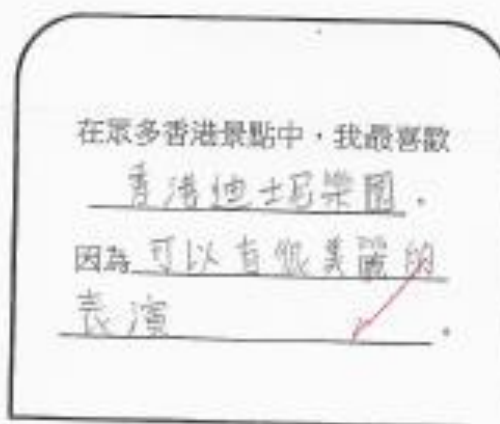 在眾多香港景點中，我最喜歡
香港迪士尼樂園，
因為可以有很美麗的
表演。